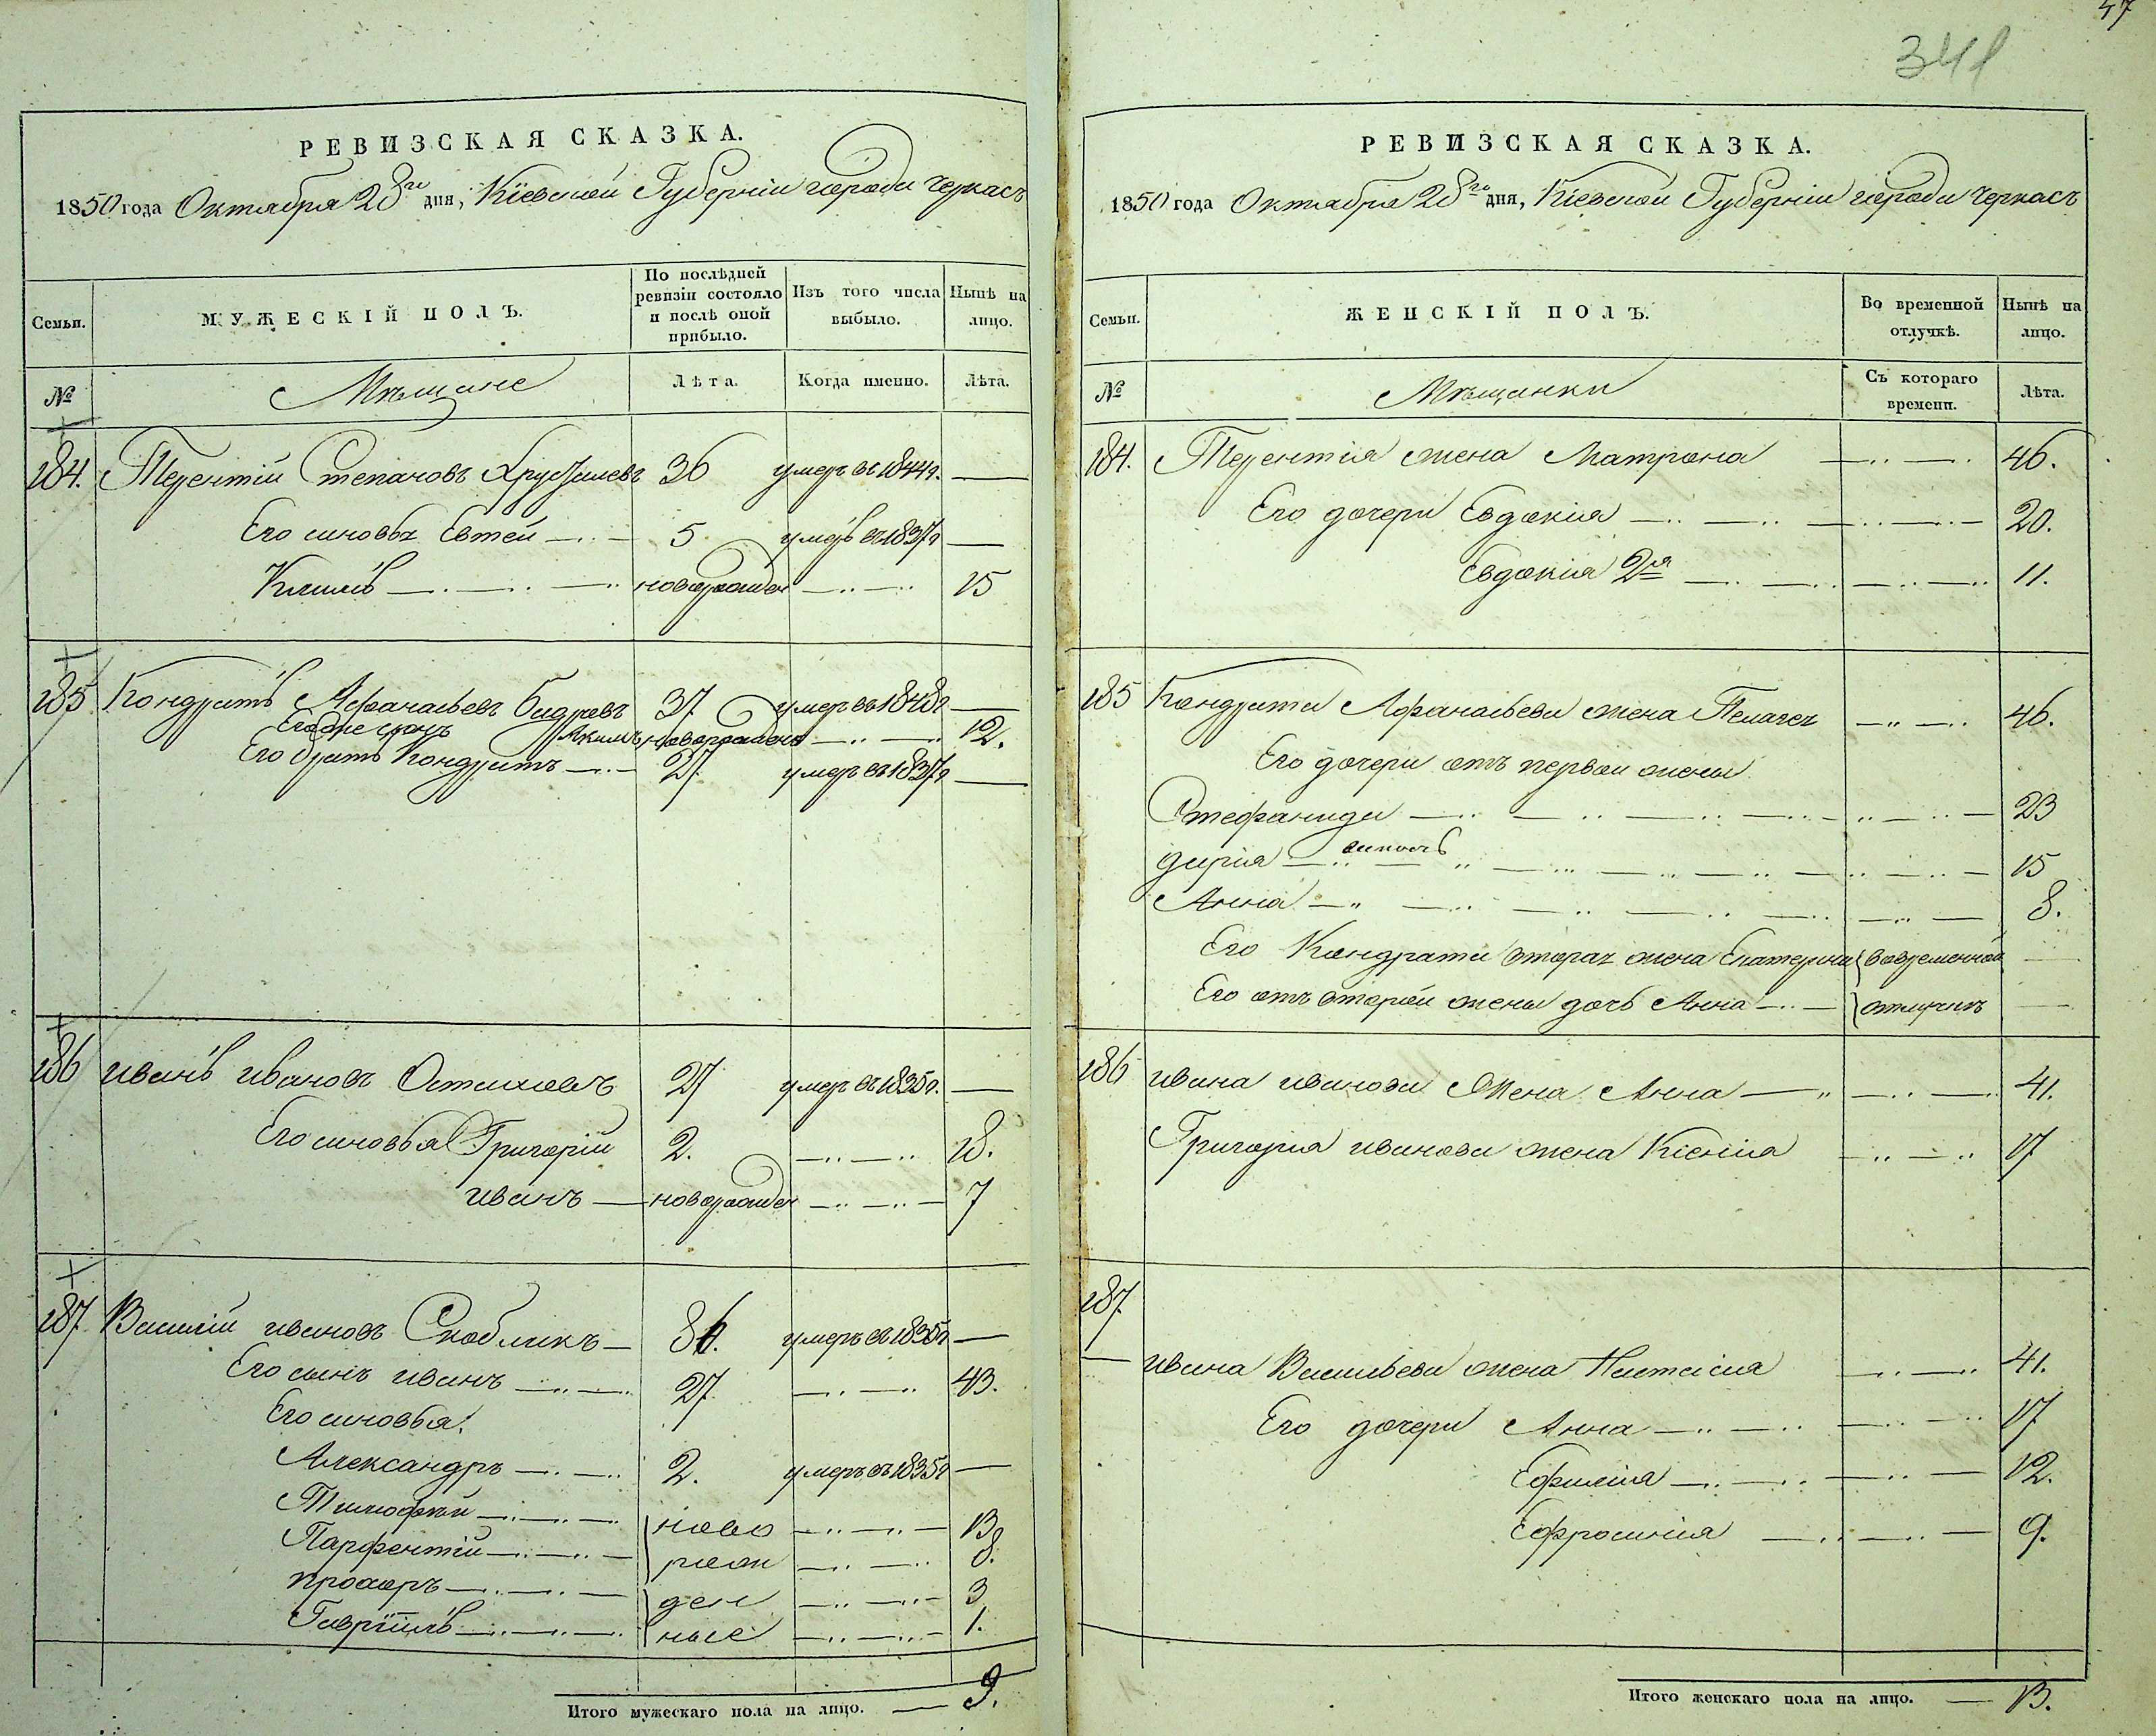 47
341
РЕВИЗСКАЯ СКАЗКА.
1850 года Октября 28го дня, Кіевской Губерніи города Черкасъ
Семьи.
МУЖЕСКІЙ ПОЛЪ.
По послѣдней ревизіи состояло и послѣ оной прибыло.
Изъ того числа выбыло.
Нынѣ на лицо.
№
Мѣщане
Лѣта.
Когда именно.
Лѣта.
184. Терентій Степановъ 36 умеръ въ 1844г. —
Его сыновья Евтей — 5 умеръ въ 1837г —
Климъ — новорожден — 15
185 Кондратъ Афанасьевъ 37 умеръ въ 1848г —
Его же сынъ Акимъ новорожденъ — 12.
Его братъ Кондратъ — 27. умеръ въ 1837г —
186 иванъ ивановъ 27 умеръ въ 1835г. —
Его сыновья Григорій 2. — 18.
иванъ — новорожден — 7
187 Василій ивановъ Скобликъ — умеръ въ 1835г —
Его сынъ иванъ — 27 — 43.
Его сыновья:
Александръ — 2. умеръ въ 1835г —
Тимофѣй — ново — 13
Парфентій — рож — 8.
прохоръ — ден — 3
Гавріилъ — ные — 1.
Итого мужескаго пола на лицо. — 9.
РЕВИЗСКАЯ СКАЗКА.
1850 года Октября 28го дня, Кіевской Губерніи города Черкасъ
Семьи.
ЖЕНСКІЙ ПОЛЪ.
Во временной отлучкѣ.
Нынѣ на лицо.
№
Мѣщанки
Съ котораго времени.
Лѣта.
184. Терентія жена Матрона — 46.
Его дочери Евдокія — 20.
Евдокія 2я — 11.
185 Кондрата Афанасьева жена — 46.
Его дочери отъ первой жены
Стефанида — 23
дарія — 15
Анна — 8.
Его Кондрата вторая жена Екатерина вовременной —
Его отъ второй жены дочь Анна — отлучкѣ —
186 ивана иванова Жена Анна — 41.
Григорія иванова жена Ксенія — 17
187.
— ивана Васильева жена Настасія — 41.
Его дочери Анна — 17
Ефимія — 12.
Ефросинія — 9.
Итого женскаго пола на лицо. — 13.